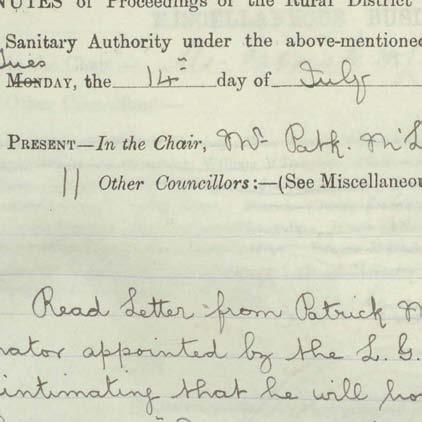 NUTES of Proceedings of the Rural District
Sanitary Authority under the above-mentione
Tues
MONDAY, the 14th day of July
PRESENT—In the Chair, Mr Patk. McL
11 Other Councillors:—(See Miscellaneou
Read Letter from Patrick M
nator appointed by the L. G.
intimating that he will ho